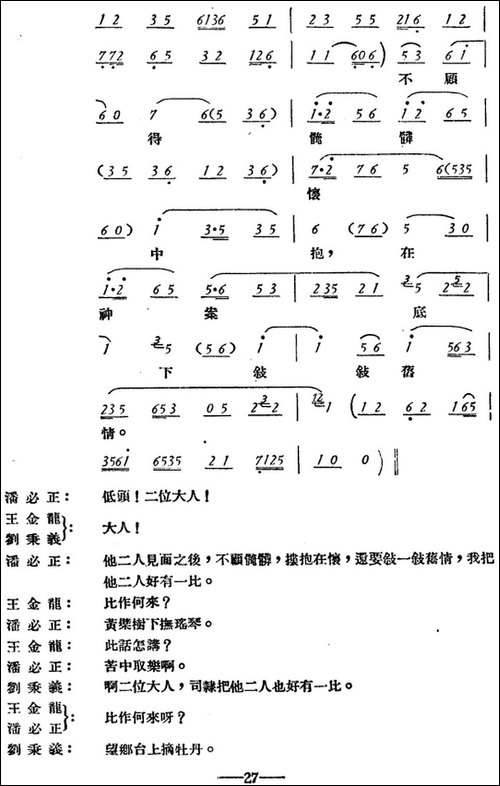 1 2 3 5 6136 5 1 | 2 3 5 5 216 1 2 |
772 6 5 3 2 126 | 1 1 606) 5 3 6 i |
不 顧
6 0 7 6(5 3 6) | i·2 5 6 i 2 6 5 |
得 骯 髒
(3 5 3 6 1 2 3 6) | 7·2 7 6 5 6(535
懷
6 0) i 3·5 3 5 | 6 (7 6) 5 3 0 |
中 抱，在
i·2 6 5 5·6 5 3 | 235 2 1 3 5 5 2 2 |
神 案 底
i 3 5 (5 6) i | i 5 6 i 56 3 |
下 敍 敍 舊
235 65 3 0 5 2 3 2 | 12 1 (1 2 6 2 1 65 |
情。
356i 6535 2 1 7125 | 1 0 0 ) ‖
潘必正： 低頭！二位大人！
王金龍
劉秉義}： 大人！
潘必正： 他二人見面之後，不顧骯髒，摟抱在懷，還要敍一敍舊情，我把
他二人好有一比。
王金龍： 比作何來？
潘必正： 黃檗樹下撫瑤琴。
王金龍： 此話怎講？
潘必正： 苦中取樂啊。
劉秉義： 啊二位大人，司隸把他二人也好有一比。
王金龍
潘必正}： 比作何來呀？
劉秉義： 望鄉台上摘牡丹。
—27—